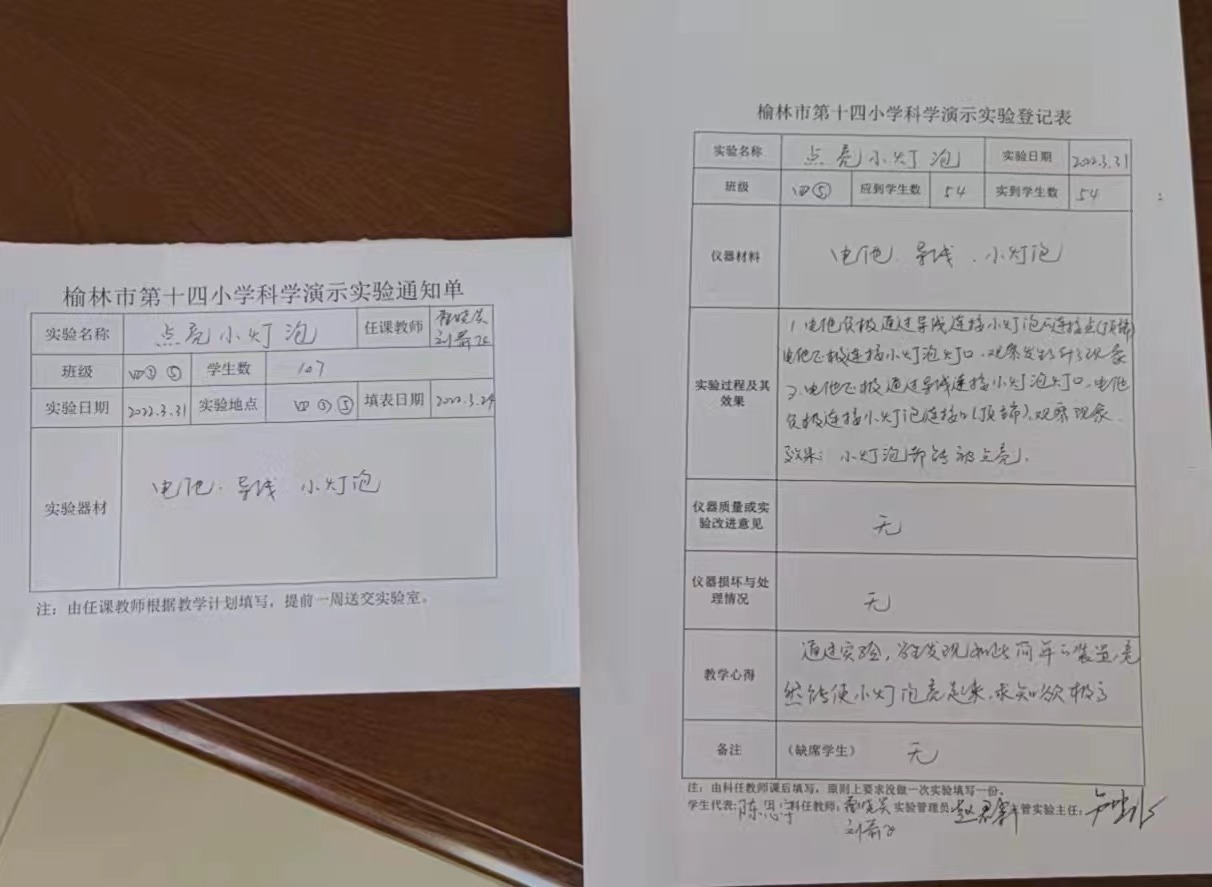 榆林市第十四小学科学演示实验通知单
实验名称 点亮小灯泡 任课教师
班级 四③⑤ 学生数 107
实验日期 2022.3.31 实验地点 四③⑤ 填表日期 2022.3.24
实验器材 电池.导线 小灯泡
注：由任课教师根据教学计划填写，提前一周送交实验室。
榆林市第十四小学科学演示实验登记表
实验名称 点亮小灯泡 实验日期 2022.3.31
班级 四⑤ 应到学生数 54 实到学生数 54
仪器材料 电池.导线.小灯泡
实验过程及其效果
1.电池负极通过导线连接小灯泡的连接点(顶端)
电池正极连接小灯泡灯口.观察发生什么现象
2.电池正极通过导线连接小灯泡灯口.电池
负极连接小灯泡连接口(顶端).观察现象.
效果:小灯泡都能被点亮.
仪器质量或实验改进意见 无
仪器损坏与处理情况 无
教学心得
通过实验,发现如此简单的装置,竟
然能使小灯泡亮起来.求知欲极高
备注 （缺席学生） 无
注：由科任教师课后填写，原则上要求没做一次实验填写一份。
学生代表: 陈思 科任教师: 实验管理员: 管实验主任: